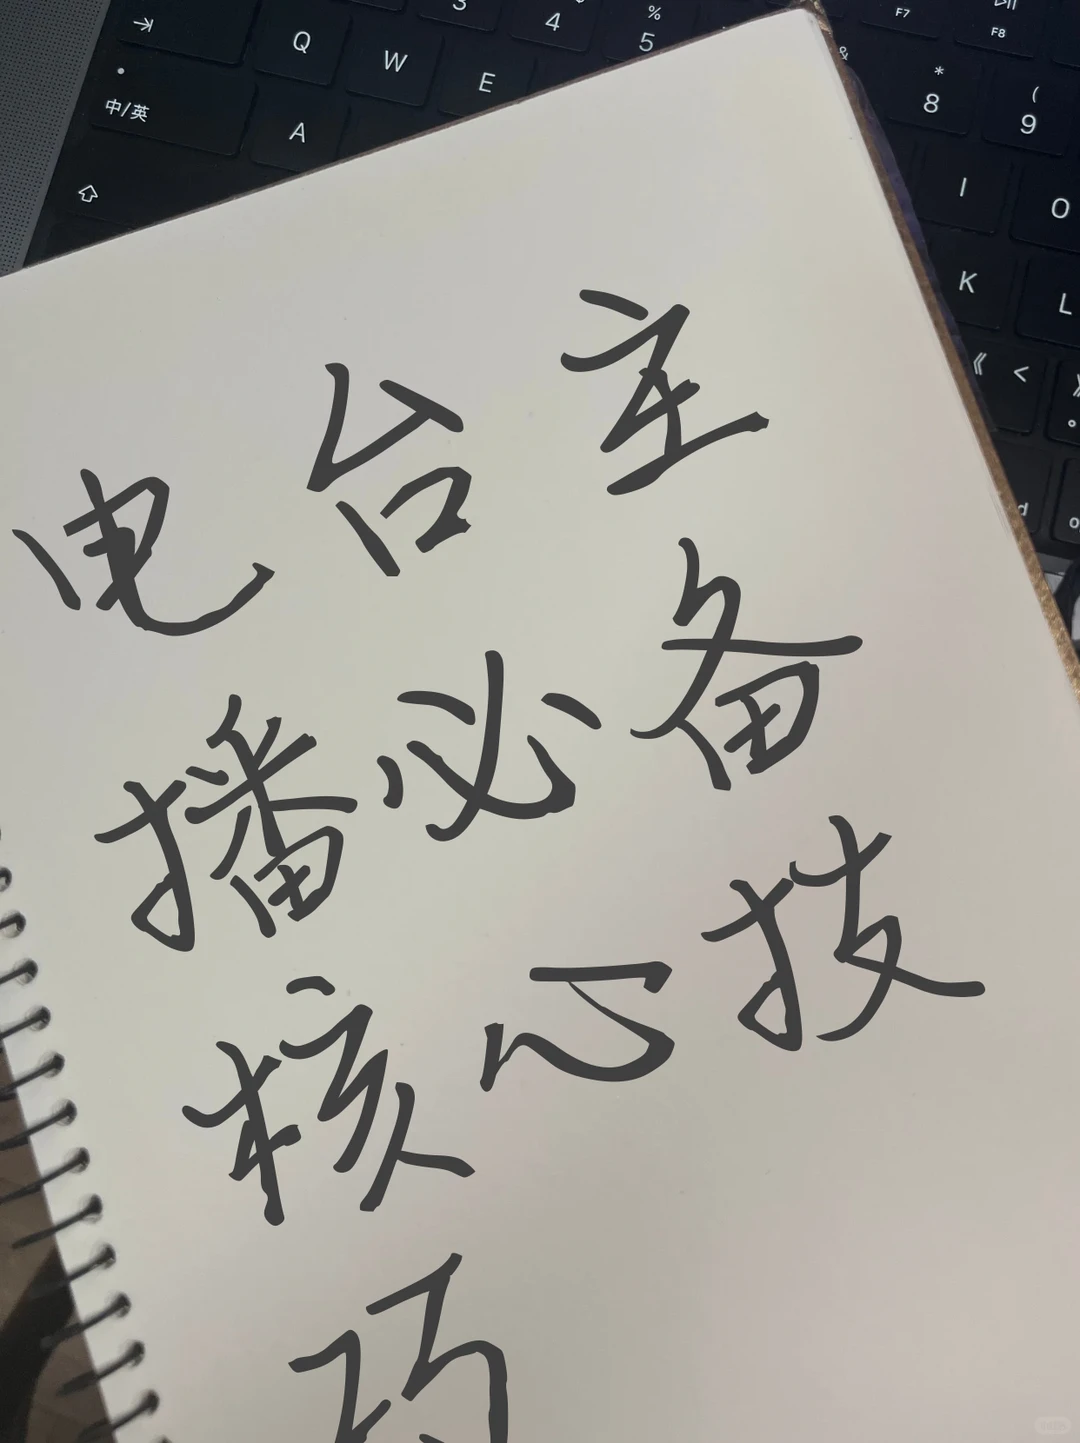 电台主
播必备
核心技
巧
Q W E
A
中/英
3
4
%
5
F7
F8
&
*
8
(
9
I
O
K
L
《 <